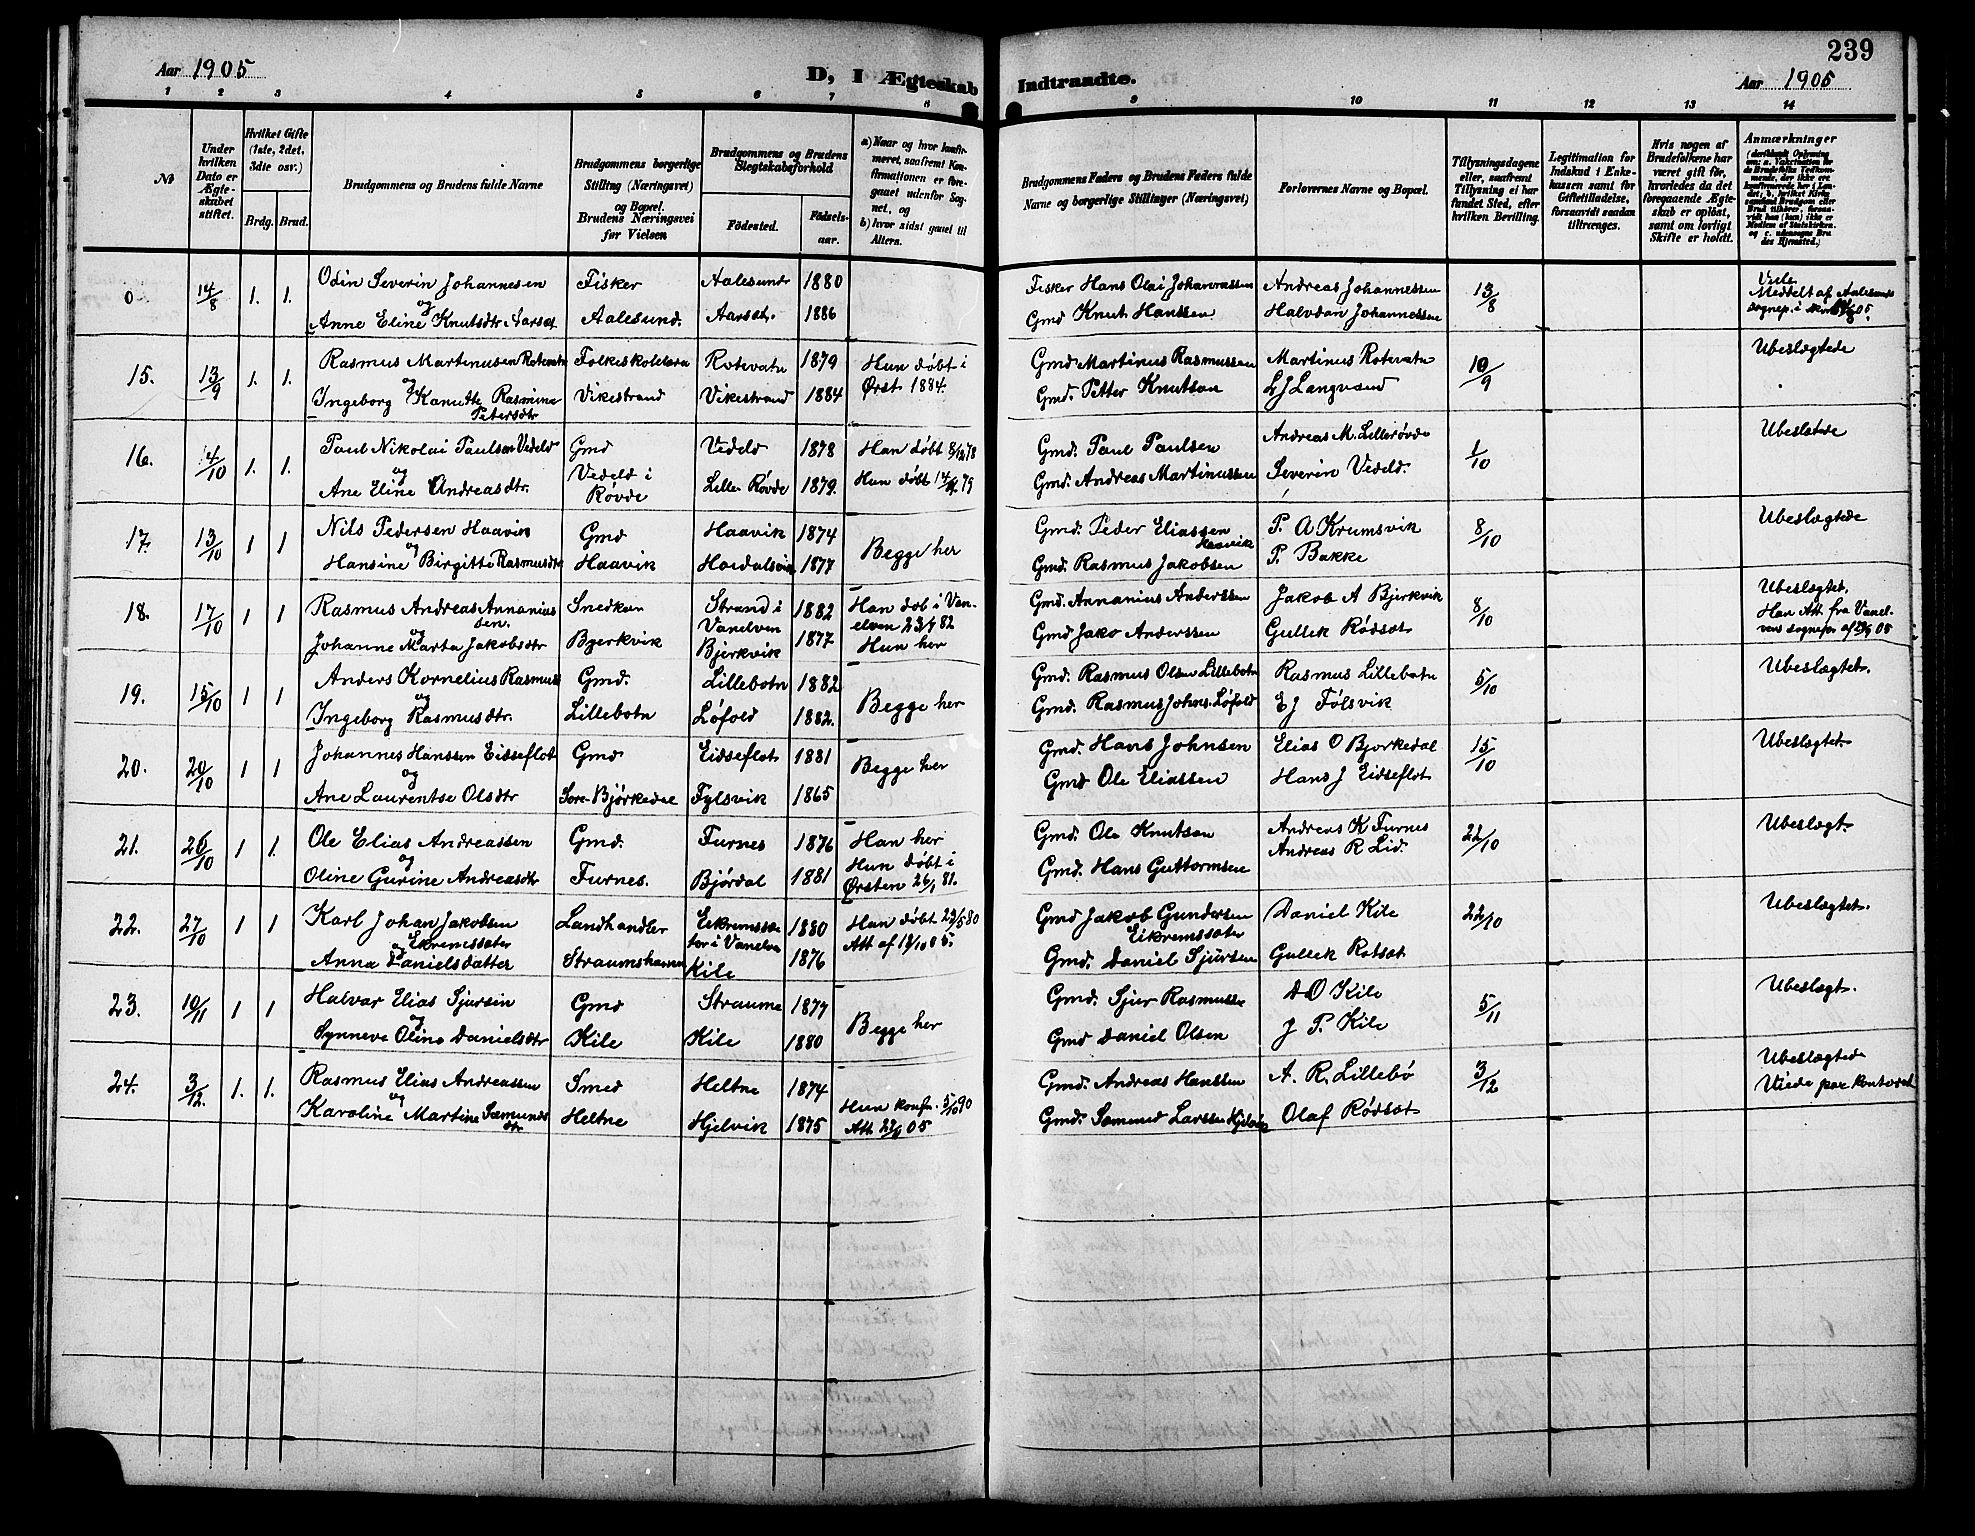 239
Aar 1905
D, I Ægteskab Indtraadte.
Aar 1905
1 2 3 4 5 6 7 8 9 10 11 12 13 14
№
Under hvilken Dato er Ægteskabet stiftet.
Hvilket Gifte (1ste, 2det, 3die osv.)
Brdg. Brud.
Brudgommens og Brudens fulde Navne
Brudgommens borgerlige Stilling (Næringsvei) og Bopæl. Brudens Næringsvei før Vielsen
Brudgommens og Brudens Slegtskabsforhold
Fødested. Fødselsaar.
a) Naar og hvor konfirmeret, saafremt Konfirmationen er foregaaet udenfor Sognet, og
b) hvor sidst gaaet til Alters.
Brudgommens Faders og Brudens Faders fulde Navne og borgerlige Stillinger (Næringsvei)
Forlovernes Navne og Bopæl.
Tillysningsdagene eller, saafremt Tillysning ei har fundet Sted, efter hvilken Bevilling.
Legitimation for Indskud i Enkekassen samt for Giftetilladelse, forsaavidt saadan tiltrænges.
Hvis nogen af Brudefolkene har været gift før, hvorledes da det foregaaende Ægteskab er opløst, samt om lovligt Skifte er holdt.
Anmærkninger
0 14/8 1. 1. Odin Severin Johannesen Fisker Aalesund 1880 Fisker Hans Olai Johannessen Andreas Johannessen 13/8 Viele. Meddelt af Aalesunds sognep.
og Anne Eline Knutsdtr Aarsæt Aalesund. Aarsæt. 1886 Gmd Knut Hanssen Halvdan Johannessen
15. 13/9 1. 1. Rasmus Martinusen Rotevatn Folkeskolelærer Rotevatn 1879 Hun døbt i Ørst 1884. Gmd Martinus Rasmussen Martinus Rotevatn 10/9 Ubeslægtede
og Ingeborg Kanutte Rasmine Petersdtr Vikestrand Vikestrand 1884 Gmd. Petter Knutsen L J Langvand
16. 4/10 1. 1. Paul Nikolai Paulsen Vedeld Gmd Vedeld 1878 Han døbt 8/12 78 Gmd. Paul Paulsen Andreas M. Lillerøvde 1/10 Ubeslætde
og Ane Eline Andreasdtr. Vedeld i Røvde Lille Røvde 1879. Hun døbt Gmd. Andreas Martinussen Severin Vedeld.
17. 13/10 1 1 Nils Pedersen Haavik Gmd Haavik 1874 Begge her Gmd. Peder Eliassen Haavik P. A Krumsvik 8/10 Ubeslægtede
og Hansine Birgitte Rasmusdtr Haavik Hoedalsvik 1877 Gmd. Rasmus Jakobsen P. Bakke
18. 17/10 1 1 Rasmus Andreas Annaniussen. Snedker Strand i Vanelven 1882 Han døb i Vanelven 23/4 82 Gmd. Annanius Anderssen Jakob A Bjerkvik 8/10 Ubeslægtet. Han Att. fra Vanelvens sognepr. af
og Johanne Marta Jakobsdtr Bjerkvik Bjerkvik 1877 Hun her Gmd Jako Anderssen Gullik Rødsæt
19. 15/10 1 1 Anders Kornelius Rasmus Gmd. Lillebotn 1882 Begge her Gmd. Rasmus Olsen Lillebotn Rasmus Lillebotn 5/10 Ubeslægtet.
og Ingeborg Rasmusdtr. Lillebotn Løfold 1882. Gmd. Rasmus Johns. Løfold E J Følsvik
20. 20/10 1 1 Johannes Hanssen Eidseflot Gmd Eidseflot 1881 Begge her Gmd. Hans Johnsen Elias O Bjorkedal 15/10 Ubeslægtet.
og Ane Laurentse Olsdtr Sore-Bjørkedal Fylsvik 1865 Gmd Ole Eliassen Hans J Eidseflot
21. 26/10 1 1. Ole Elias Andreassen Gmd. Furnes 1876 Han her Gmd. Ole Knutsen Andreas K Furnes 22/10 Ubeslægt.
og Oline Gurine Andreasdtr Furnes. Bjørdal 1881 Hun døbt i Ørsten 26/1 81. Gmd. Hans Guttormsen Andreas R Lid.
22. 27/10 1 1 Karl Johan Jakobsen Eikremssæter Landhandler Eikremssæter i Vanelven 1880 Han døbt 23/5 80 Att af Gmd Jakob Gundersen Eikremssæter Daniel Kile 22/10 Ubeslægtet.
og Anna Danielsdatter Straumshavn Kile 1876 Gmd. Daniel Sjursen Gullik Rotsæt
23. 10/11 1 1 Halvar Elias Sjursin Gmd Straume 1877 Begge her Gmd. Sjur Rasmusse D O Kile 5/11 Ubeslægt.
og Synneve Oline Danielsdtr Kile Kile 1880 Gmd Daniel Olsen J P. Kile
24. 3/12. 1. 1. Rasmus Elias Andreassen Smed Heltne 1874 Gmd. Andreas Hanssen A. R. Lillebø 3/12 Ubeslægtede
og Karoline Martine Sæmundsdtr Heltne Hjelvik 1875 Hun konfr. 5/10 90 Att. Gmd. Sæmund Larssen Hjelvik Olaf Rødsæt Viede paa kontoret